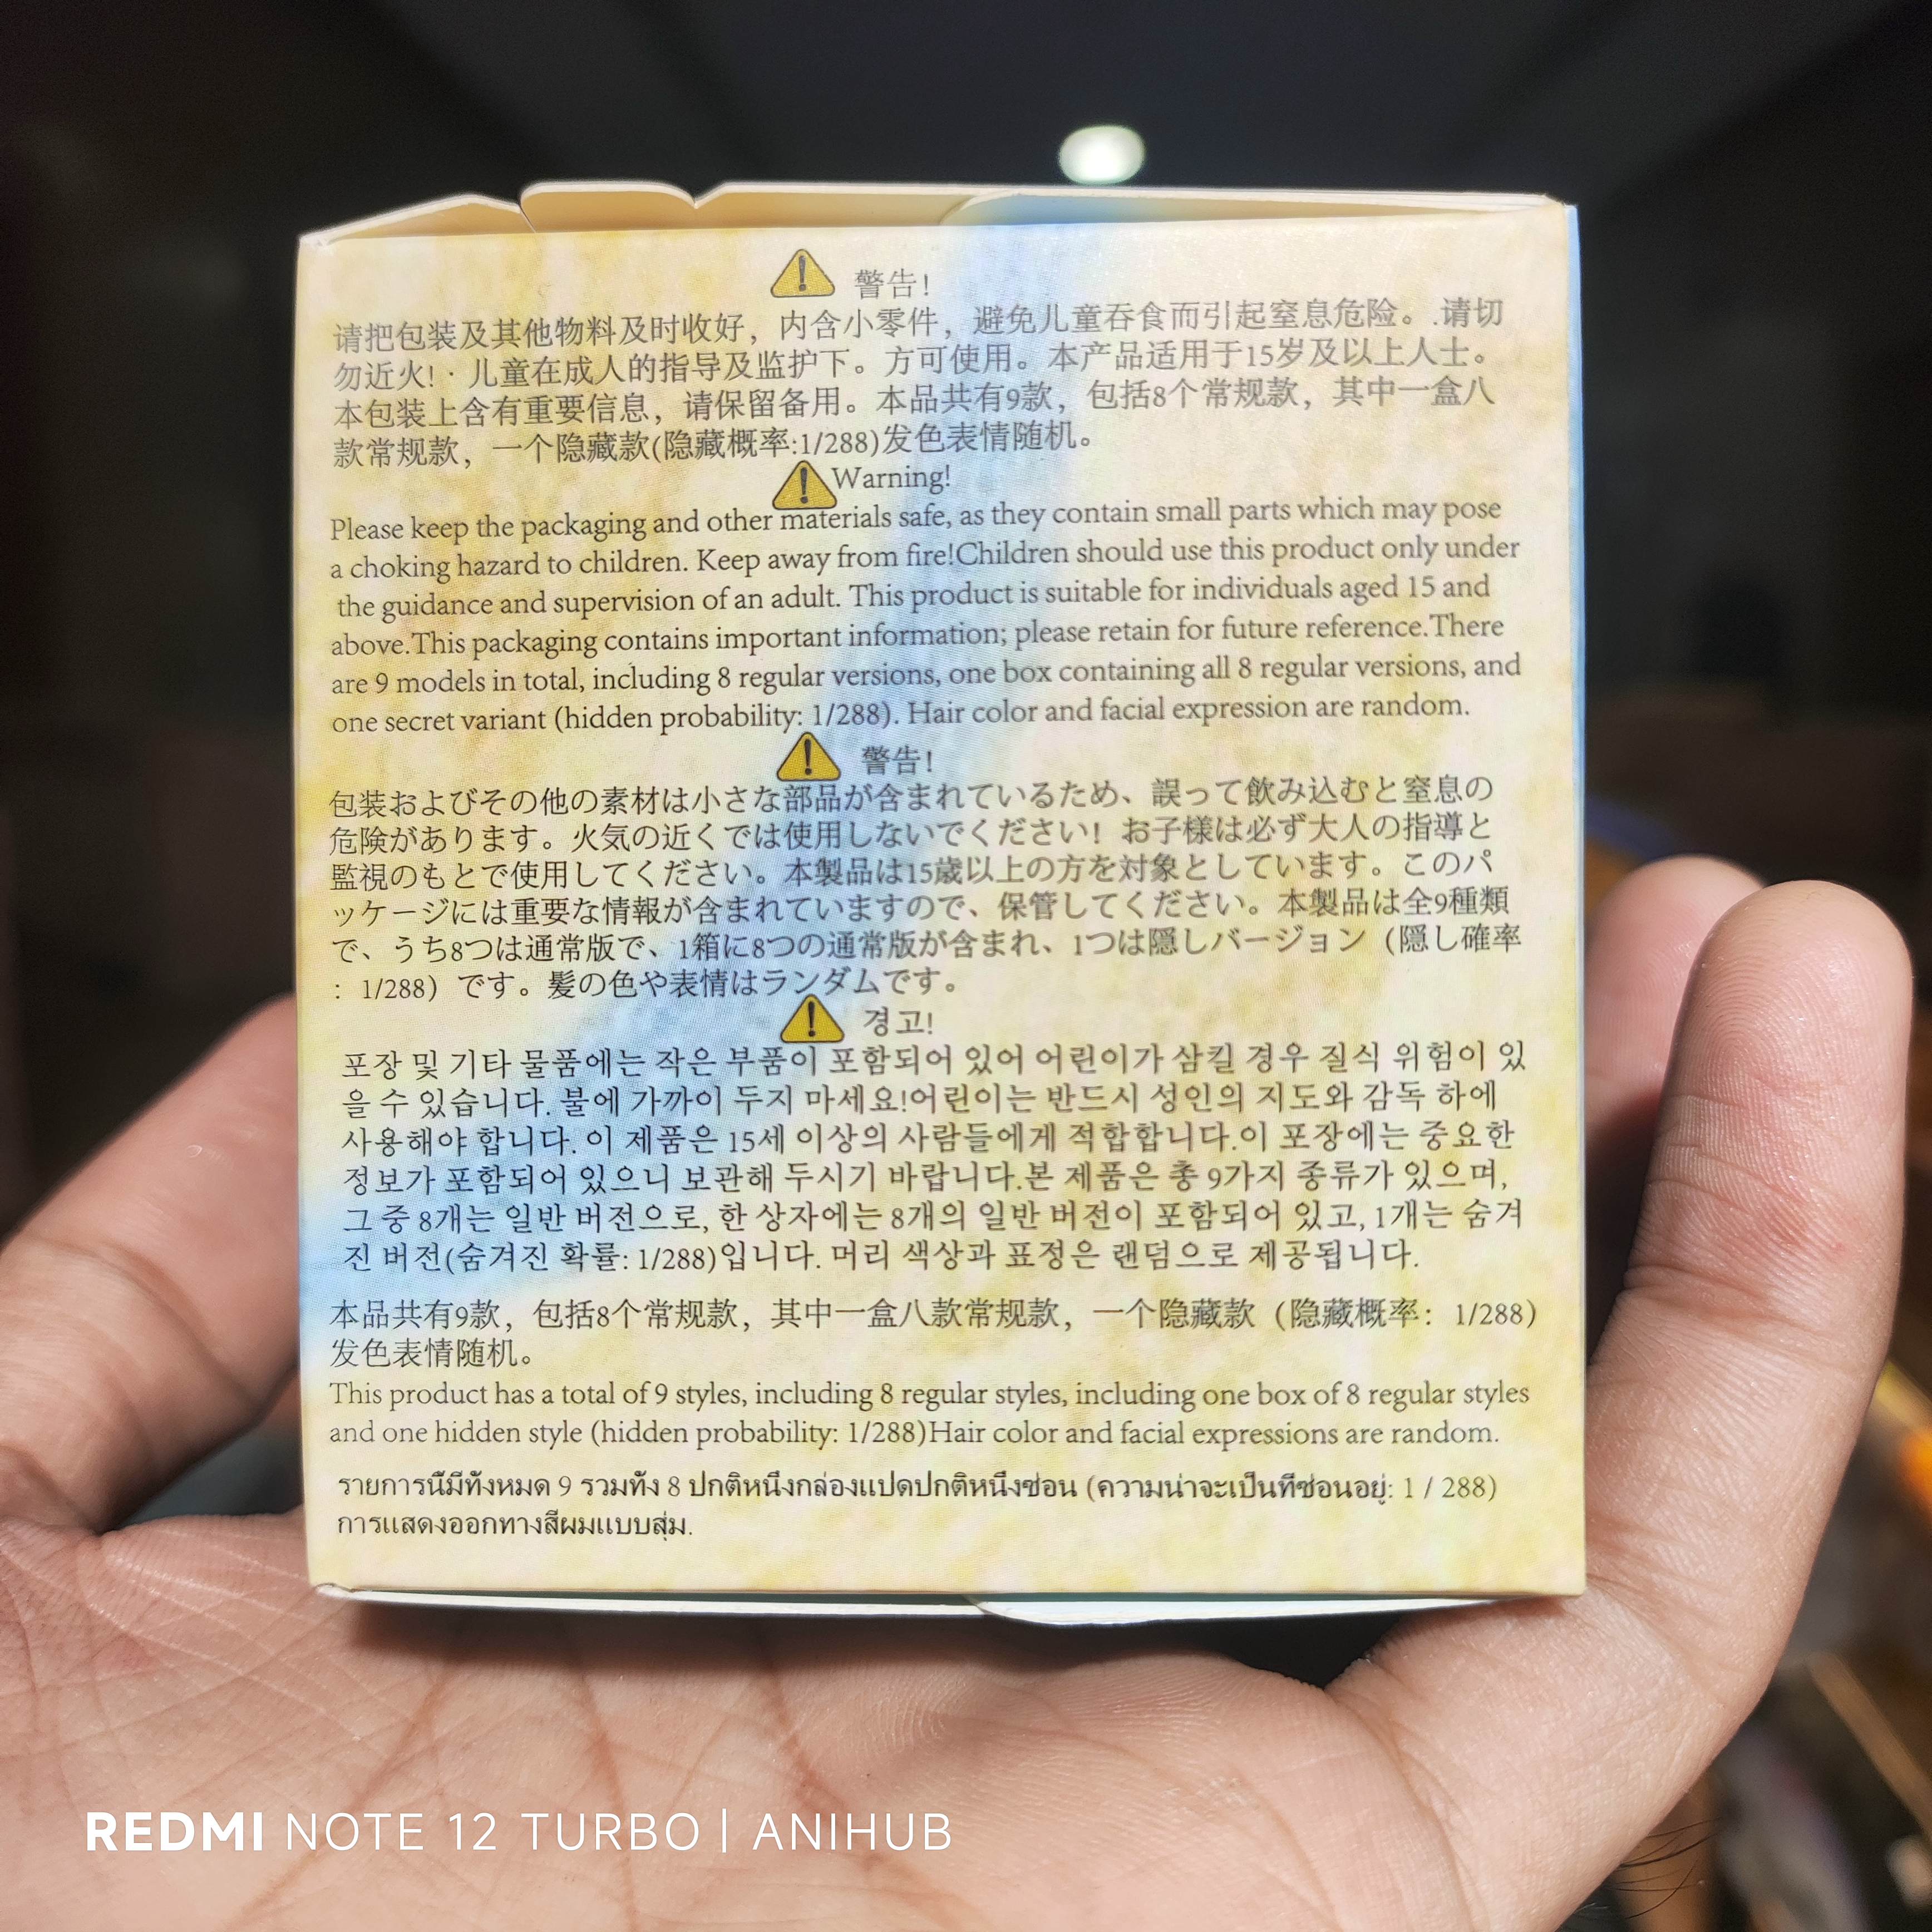 警告!
请把包装及其他物料及时收好，内含小零件，避免儿童吞食而引起窒息危险。.请切
勿近火!·儿童在成人的指导及监护下。方可使用。本产品适用于15岁及以上人士。
本包装上含有重要信息，请保留备用。本品共有9款，包括8个常规款，其中一盒八
款常规款，一个隐藏款(隐藏概率:1/288)发色表情随机。
Warning!
Please keep the packaging and other materials safe, as they contain small parts which may pose
a choking hazard to children. Keep away from fire!Children should use this product only under
the guidance and supervision of an adult. This product is suitable for individuals aged 15 and
above.This packaging contains important information; please retain for future reference.There
are 9 models in total, including 8 regular versions, one box containing all 8 regular versions, and
one secret variant (hidden probability: 1/288). Hair color and facial expression are random.
警告!
包装およびその他の素材は小さな部品が含まれているため、誤って飲み込むと窒息の
危険があります。火気の近くでは使用しないでください! お子様は必ず大人の指導と
監視のもとで使用してください。本製品は15歳以上の方を対象としています。このパ
ッケージには重要な情報が含まれていますので、保管してください。本製品は全9種類
で、うち8つは通常版で、1箱に8つの通常版が含まれ、1つは隠しバージョン（隠し確率
: 1/288）です。髪の色や表情はランダムです。
경고!
포장 및 기타 물품에는 작은 부품이 포함되어 있어 어린이가 삼킬 경우 질식 위험이 있
을 수 있습니다. 불에 가까이 두지 마세요!어린이는 반드시 성인의 지도와 감독 하에
사용해야 합니다. 이 제품은 15세 이상의 사람들에게 적합합니다.이 포장에는 중요한
정보가 포함되어 있으니 보관해 두시기 바랍니다.본 제품은 총 9가지 종류가 있으며,
그 중 8개는 일반 버전으로, 한 상자에는 8개의 일반 버전이 포함되어 있고, 1개는 숨겨
진 버전(숨겨진 확률: 1/288)입니다. 머리 색상과 표정은 랜덤으로 제공됩니다.
本品共有9款，包括8个常规款，其中一盒八款常规款，一个隐藏款（隐藏概率：1/288）
发色表情随机。
This product has a total of 9 styles, including 8 regular styles, including one box of 8 regular styles
and one hidden style (hidden probability: 1/288)Hair color and facial expressions are random.
รายการนี้มีทั้งหมด 9 รวมทั้ง 8 ปกติหนึ่งกล่องแปดปกติหนึ่งซ่อน (ความน่าจะเป็นที่ซ่อนอยู่: 1 / 288)
การแสดงออกทางสีผมแบบสุ่ม.
REDMI NOTE 12 TURBO | ANIHUB